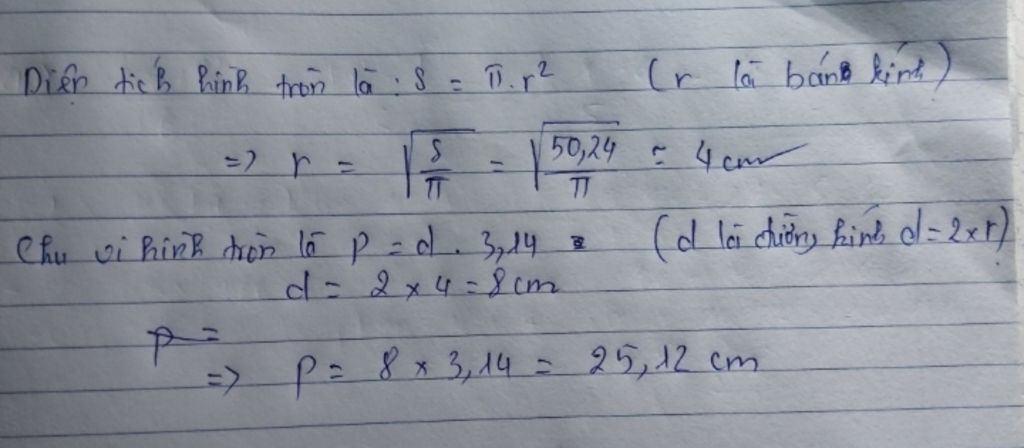 Diện tích hình tròn là : S = π.r² (r là bán kính)
=> r = √(S/π) = √(50,24/π) = 4 cm
Chu vi hình tròn là P = d . 3,14 (d là đường kính d = 2 x r)
d = 2 x 4 = 8 cm
P =
=> P = 8 x 3,14 = 25,12 cm